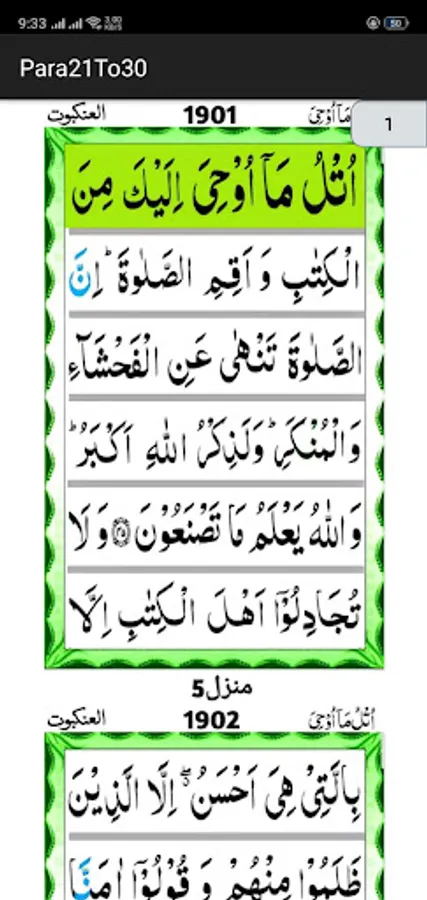 9:33 3.80 KB/S 50
Para21To30
العنكبوت 1901 مَآ اُوْحِیَ
1
اُتْلُ مَاۤ اُوْحِیَ اِلَیْكَ مِنَ
الْكِتٰبِ وَ اَقِمِ الصَّلٰوةَ ؕ اِنَّ
الصَّلٰوةَ تَنْهٰی عَنِ الْفَحْشَآءِ
وَالْمُنْكَرِ ؕ وَلَذِكْرُ اللّٰهِ اَكْبَرُ ؕ
وَاللّٰهُ یَعْلَمُ مَا تَصْنَعُوْنَ ۝۴۵ وَ لَا
تُجَادِلُوْۤا اَهْلَ الْكِتٰبِ اِلَّا
منزل5
العنكبوت 1902 اُتْلُ مَآ اُوْحِیَ
بِالَّتِیْ هِیَ اَحْسَنُ ۖ اِلَّا الَّذِیْنَ
ظَلَمُوْا مِنْهُمْ وَ قُوْلُوْۤا اٰمَنَّا